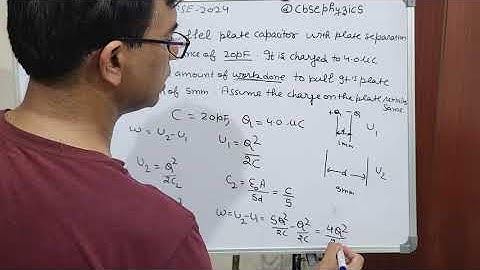 SE-2024 @cbsephyzics
llel plate capacitor with plate separation
nce of 20pF. It is charged to 4.0μC
amount of workdone to pull its plate
of 5mm Assume the charge on the plate remains
same.
C = 20pF, Q = 4.0 μC
+Q -Q
U1
1mm
W = U2-U1
U1 = Q²/2C
U2 = Q²/2C2
C2 = ε0A/5d = C/5
U2
5mm
W = U2-U1 = 5Q²/2C - Q²/2C = 4Q²